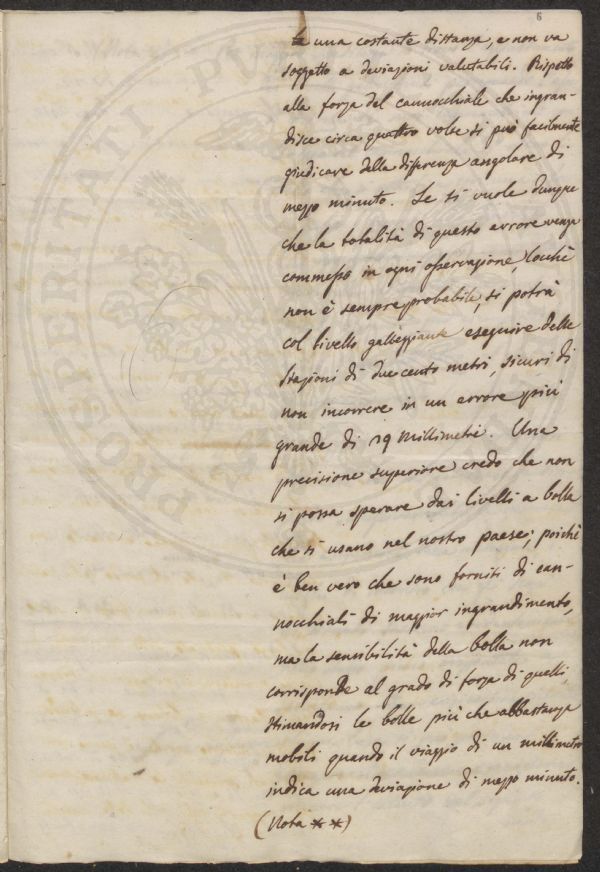 6
ta una costante distanza, e non va
soggetto a deviazioni valutabili. Rispetto
alla forza del cannocchiale che ingran-
disce circa quattro volte si può facilmente
giudicare della differenza angolare di
mezzo minuto. Se si vuole dunque
che la totalità di questo errore venga
commesso in ogni osservazione, locchè
non è sempre probabile, si potrà
col livello galleggiante eseguire delle
stazioni di due cento metri, sicuri di
non incorrere in un errore più
grande di 29 Millimetri. Una
precisione superiore credo che non
si possa sperare dai livelli a bolla
che si usano nel nostro paese; poichè
è ben vero che sono forniti di can-
nocchiali di maggior ingrandimento,
ma la sensibilità della bolla non
corrisponde al grado di forza di quelli,
stimandosi le bolle più che abbastanza
mobili quando il viaggio di un millimetro
indica una deviazione di mezzo minuto.
(Nota **)
PROSPERITATI PU